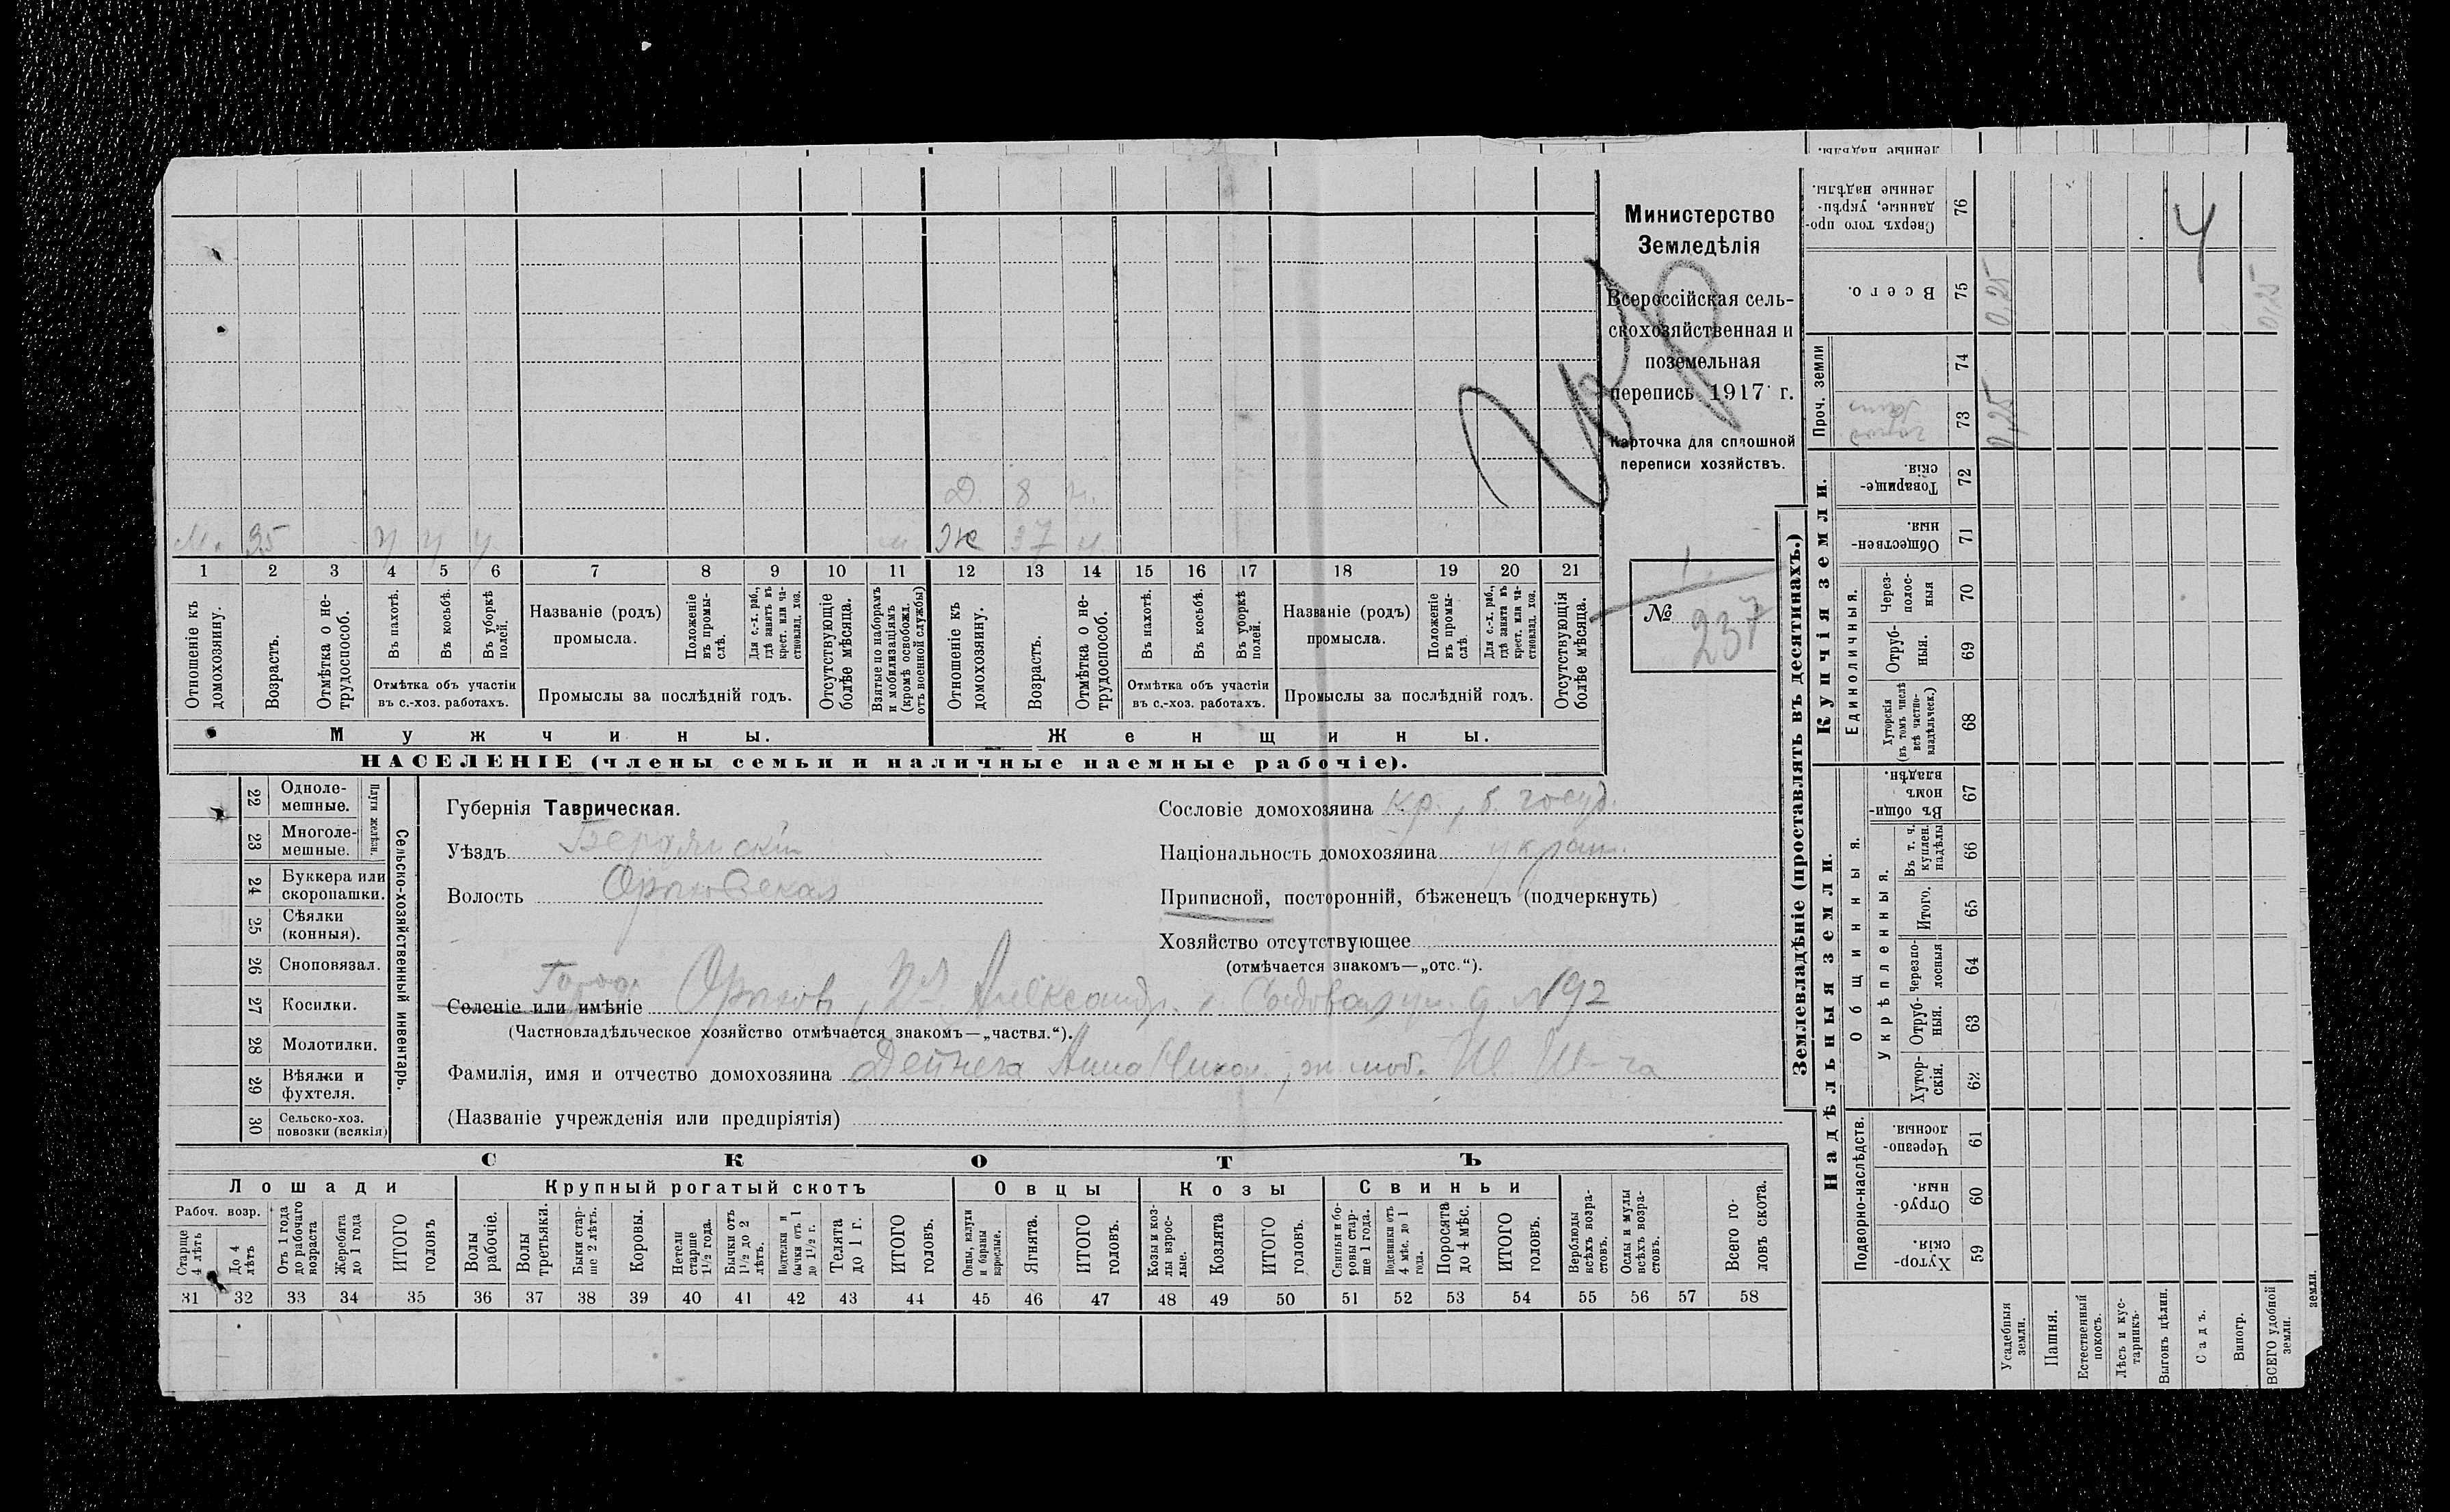 Министерство
Земледѣлія
Всероссійская сель-
скохозяйственная и
поземельная
перепись 1917 г.
Карточка для сплошной
переписи хозяйствъ.
№ 237
Д. 8 н.
М. 35 у у у
Ж 37 н.
1 2 3 4 5 6 7 8 9 10 11 12 13 14 15 16 17 18 19 20 21
Отношеніе къ домохозяину.
Возрастъ.
Отмѣтка о не-трудоспособ.
Въ пахотѣ.
Въ косьбѣ.
Въ уборкѣ полей.
Отмѣтка объ участіи
въ с.-хоз. работахъ.
Названіе (родъ)
промысла.
Положеніе въ промы-слѣ.
Для с.-х. раб., гдѣ занятъ въ крест. или ча-стновлад. хоз.
Промыслы за послѣдній годъ.
Отсутствующіе болѣе мѣсяца.
Взятые по наборамъ и мобилизаціямъ (кромѣ освобожд. отъ военной службы)
Отношеніе къ домохозяину.
Возрастъ.
Отмѣтка о не-трудоспособ.
Въ пахотѣ.
Въ косьбѣ.
Въ уборкѣ полей.
Отмѣтка объ участіи
въ с.-хоз. работахъ.
Названіе (родъ)
промысла.
Положеніе въ промы-слѣ.
Для с.-х. раб., гдѣ занята въ крест. или ча-стновлад. хоз.
Промыслы за послѣдній годъ.
Отсутствующія болѣе мѣсяца.
Мужчины.
Женщины.
НАСЕЛЕНІЕ (члены семьи и наличные наемные рабочіе).
22 Одноле-мешные.
23 Многоле-мешные.
Плуги желѣзн.
24 Буккера или скоропашки.
25 Сѣялки (конныя).
26 Сноповязал.
27 Косилки.
28 Молотилки.
29 Вѣялки и фухтеля.
30 Сельско-хоз. повозки (всякія)
Сельско-хозяйственный инвентарь.
Губернія Таврическая.
Уѣздъ Бердянскій
Волость Орѣховская
Город
Селеніе или имѣніе Орѣхов, Александр. Садовая ул. д №92
(Частновладѣльческое хозяйство отмѣчается знакомъ—„частвл.“).
Фамилія, имя и отчество домохозяина Дейнега Анна Никол., ж. моб.
(Названіе учрежденія или предпріятія)
Сословіе домохозяина кр., б. госуд.
Національность домохозяина украин.
Приписной, посторонній, бѣженецъ (подчеркнуть)
Хозяйство отсутствующее
(отмѣчается знакомъ—„отс.“).
СКОТЪ
Лошади
Крупный рогатый скотъ
Овцы
Козы
Свиньи
Рабоч. возр.
Старше 4 лѣтъ
До 4 лѣтъ
Отъ 1 года до рабочаго возраста
Жеребята до 1 года
ИТОГО головъ
Волы рабочіе.
Волы третьяки.
Быки стар-ше 2 лѣтъ.
Коровы.
Нетели старше 1½ года.
Бычки отъ 1½ до 2 лѣтъ.
Подтелки и бычки отъ 1 до 1½ г.
Телята до 1 г.
ИТОГО головъ.
Овцы, валухи и бараны взрослые.
Ягнята.
ИТОГО головъ.
Козы и коз-лы взрос-лые.
Козлята
ИТОГО головъ.
Свиньи и бо-ровы стар-ше 1 года.
Подсвинки отъ 4 мѣс. до 1 года.
Поросята до 4 мѣс.
ИТОГО головъ.
Верблюды всѣхъ возра-стовъ.
Ослы и мулы всѣхъ возра-стовъ.
Всего го-ловъ скота.
31 32 33 34 35 36 37 38 39 40 41 42 43 44 45 46 47 48 49 50 51 52 53 54 55 56 57 58
Землевладѣніе (проставлять въ десятинахъ.)
Надѣльныя земли.
Купчія земли.
Проч. земли
Подворно-наслѣдств.
Общинныя.
Укрѣпленныя.
Единоличныя.
Сверхъ того про-данные, укрѣп-ленные надѣлы. 76
Всего. 75 0,25 0,25
74
73 0,25
Товарище-скія. 72
Обществен-ныя. 71
Через-полос-ныя 70
Отруб-ныя. 69
Хуторскія (въ томъ числѣ всѣ частно-владѣльческ.) 68
Въ общи-номъ владѣн. 67
Въ т. ч. куплен. надѣлы 66
Итого. 65
Черезпо-лосныя 64
Отруб-ныя. 63
Хутор-скія. 62
Черезпо-лосныя. 61
Отруб-ныя. 60
Хутор-скія. 59
4
Усадебныя земли.
Пашня.
Естественный покосъ.
Лѣсъ и кус-тарникъ.
Выгонъ цѣлин.
Садъ.
Виногр.
ВСЕГО удобной земли.
земли.